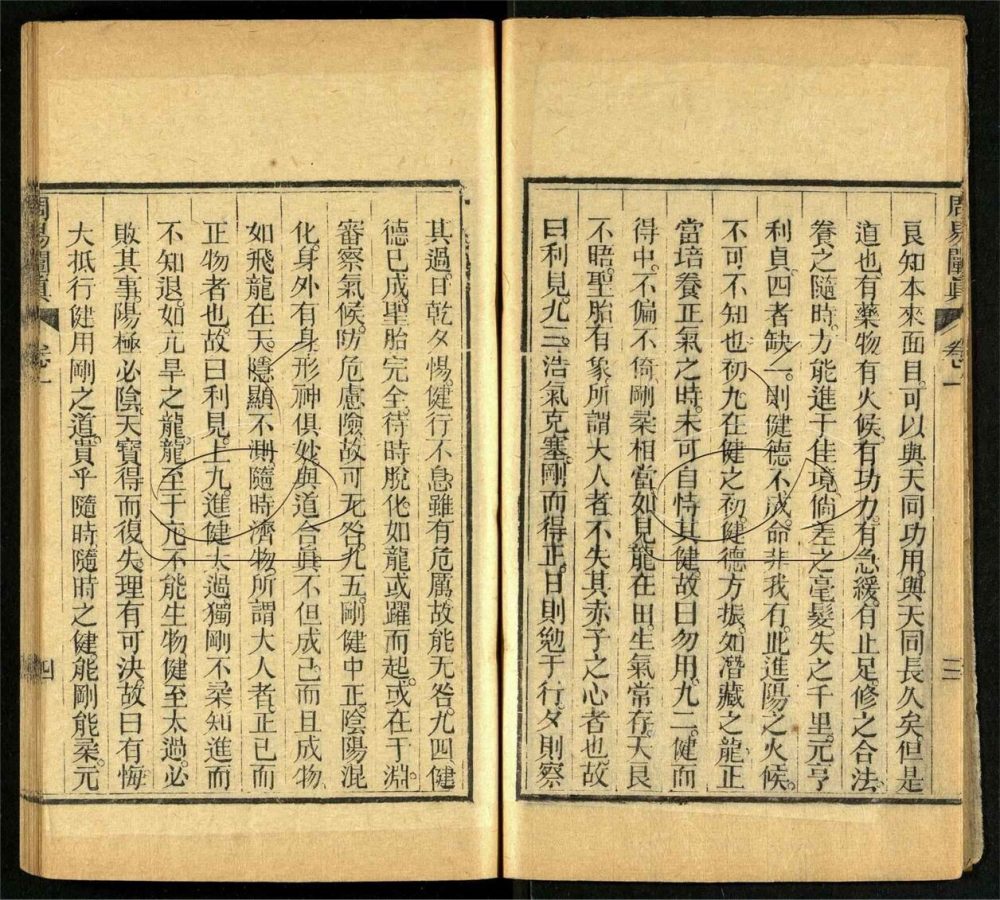 周易闡眞 卷一 三
良知本來面目可以與天同功用與天同長久矣但是
道也有藥物有火候有功力有急緩有止足修之合法
養之隨時力能進于佳境倘差之毫髮失之千里元亨
利貞四者缺一則健德不成命非我有此進陽之火候
不可不知也初九在健之初健德方振如潛藏之龍正
當培養正氣之時未可自恃其健故曰勿用九二健而
得中不偏不倚剛柔相當如見龍在田生氣常存天良
不晤聖胎有象所謂大人者不失其赤子之心者也故
曰利見九三浩氣克塞剛而得正日則勉于行夕則察
其過日乾夕惕健行不息雖有危厲故能无咎九四健
德已成聖胎完全待時脫化如龍或躍而起或在于淵
審察氣候防危慮險故可无咎九五剛健中正陰陽混
化身外有身形神俱妙與道合眞不但成己而且成物
如飛龍在天隱顯不測隨時濟物所謂大人者正己而
正物者也故曰利見上九進健太過獨剛不柔知進而
不知退如亢旱之龍龍至于亢不能生物健至太過必
敗其事陽極必陰天寶得而復失理有可決故曰有悔
大抵行健用剛之道貴乎隨時隨時之健能剛能柔元
周易闡眞 卷一 四